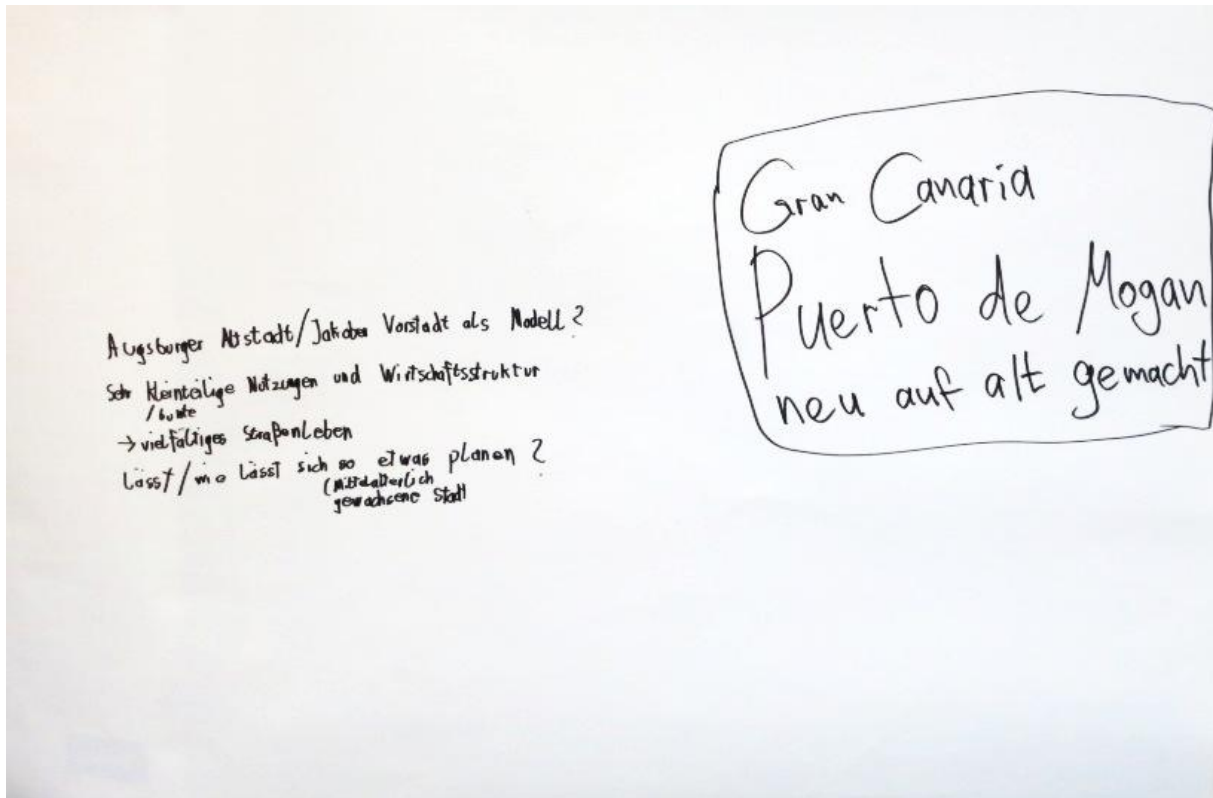 Augsburger Altstadt/Jakober Vorstadt als Modell?
Sehr kleinteilige Nutzungen und Wirtschaftsstruktur
/bunte
→ vielfältiges Straßenleben
Lässt/wie lässt sich so etwas planen?
(Mittelalterlich
gewachsene Stadt
Gran Canaria
Puerto de Mogan
neu auf alt gemacht